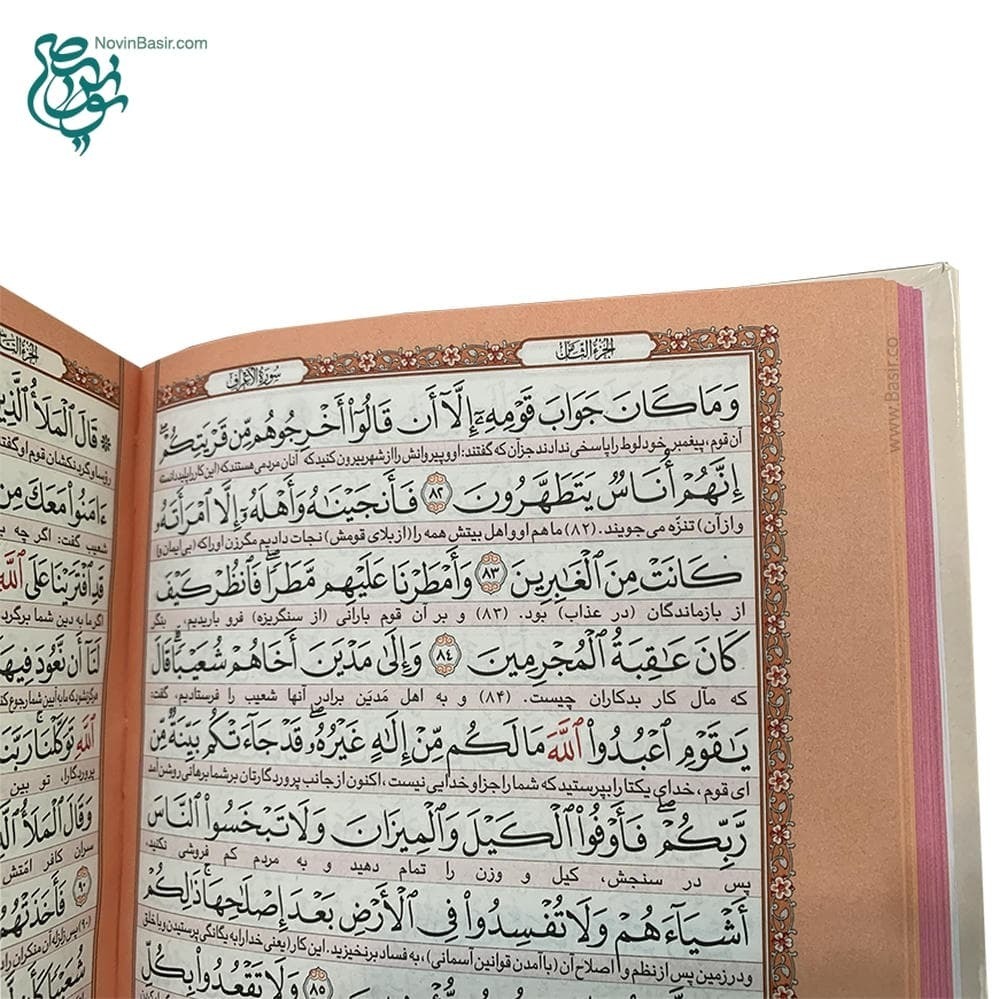 NovinBasir.com
الجزء الثامن
سورة الأعراف
وَمَا كَانَ جَوَابَ قَوْمِهِۦٓ إِلَّآ أَن قَالُوٓا۟ أَخْرِجُوهُم مِّن قَرْيَتِكُمْ ۖ
آن قوم، پیغمبر خود لوط را پاسخی ندادند جز آن که گفتند: او و پیروانش را از شهر بیرون کنید که آنان مردمی هستند که (این کار را پلید دانسته
إِنَّهُمْ أُنَاسٌ يَتَطَهَّرُونَ ﴿٨٢﴾ فَأَنجَيْنَٰهُ وَأَهْلَهُۥٓ إِلَّا ٱمْرَأَتَهُۥ
و از آن) تنزّه می‌جویند. (۸۲) ما هم او و اهل بیتش همه را (از بلای قومش) نجات دادیم مگر زن او را که (بی‌ایمان و)
كَانَتْ مِنَ ٱلْغَٰبِرِينَ ﴿٨٣﴾ وَأَمْطَرْنَا عَلَيْهِم مَّطَرًا ۖ فَٱنظُرْ كَيْفَ
از بازماندگان (در عذاب) بود. (۸۳) و بر آن قوم بارانی (از سنگریزه) فرو باریدیم، بنگر
كَانَ عَٰقِبَةُ ٱلْمُجْرِمِينَ ﴿٨٤﴾ وَإِلَىٰ مَدْيَنَ أَخَاهُمْ شُعَيْبًا ۗ قَالَ
که مآل کار بدکاران چیست. (۸۴) و به اهل مَدیَن برادر آنها شعیب را فرستادیم، گفت:
يَٰقَوْمِ ٱعْبُدُوا۟ ٱللَّهَ مَا لَكُم مِّنْ إِلَٰهٍ غَيْرُهُۥ ۖ قَدْ جَآءَتْكُم بَيِّنَةٌ مِّن
ای قوم، خدای یکتا را بپرستید که شما را جز او خدایی نیست، اکنون از جانب پروردگارتان بر شما برهانی روشن آمد
رَّبِّكُمْ ۖ فَأَوْفُوا۟ ٱلْكَيْلَ وَٱلْمِيزَانَ وَلَا تَبْخَسُوا۟ ٱلنَّاسَ
پس در سنجش، کیل و وزن را تمام دهید و به مردم کم فروشی نکنید،
أَشْيَآءَهُمْ وَلَا تُفْسِدُوا۟ فِى ٱلْأَرْضِ بَعْدَ إِصْلَٰحِهَا ۚ ذَٰلِكُمْ
و در زمین پس از نظم و اصلاح آن (با آمدن قوانین آسمانی)، به فساد برنخیزید. این کار (یعنی خدا را به یگانگی پرستیدن و با خلق
﴿٨٥﴾ وَلَا تَقْعُدُوا۟ بِكُلِّ
قَالَ ٱلْمَلَأُ ٱلَّذِينَ
رؤسا و گردنکشان قوم او گفتند
ءَامَنُوا۟ مَعَكَ مِن
شعیب گفت: اگر چه
قَدِ ٱفْتَرَيْنَا عَلَى ٱللَّهِ
اگر ما به دین شما برگردیم
لَنَآ أَن نَّعُودَ فِيهَآ
هرگز نشود که ما به آیین شما رجوع کنیم
ٱللَّهِ تَوَكَّلْنَا ۚ رَبَّنَا
پروردگارا، تو بین
وَقَالَ ٱلْمَلَأُ ٱلَّذِينَ
سران کافر امّتش
﴿٩٠﴾ فَأَخَذَتْهُمُ
(۹۰) پس زلزله آن منکران را
شُعَيْبًا كَأَن
www.Basir.co